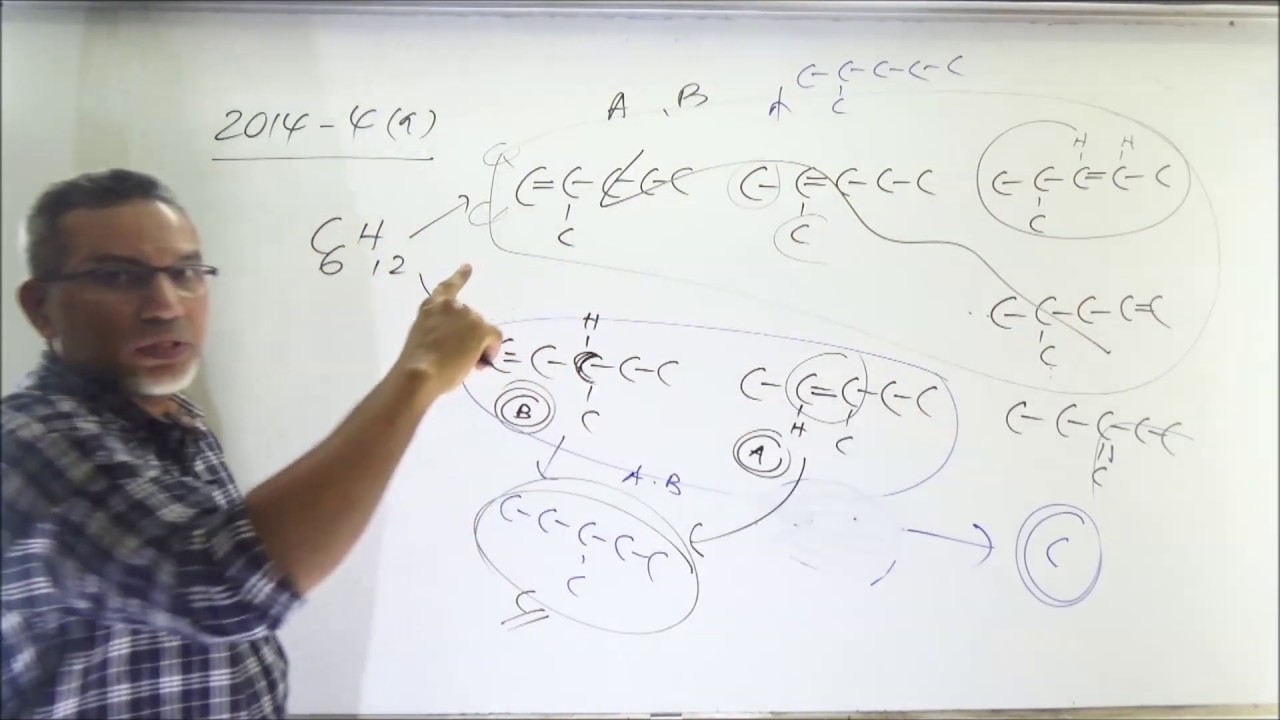 2014 - 4 (a)
A , B
A C-C-C-C-C
C
C6H12
C=C-C-C-C
C
C-C=C-C-C
C
H H
C-C-C=C-C
C
C-C-C-C=C
C
H
C=C-C-C-C
C
B
C-C=C-C-C
H C
A
C-C-C-C-C
C
A . B
C-C-C-C-C
C
C
C